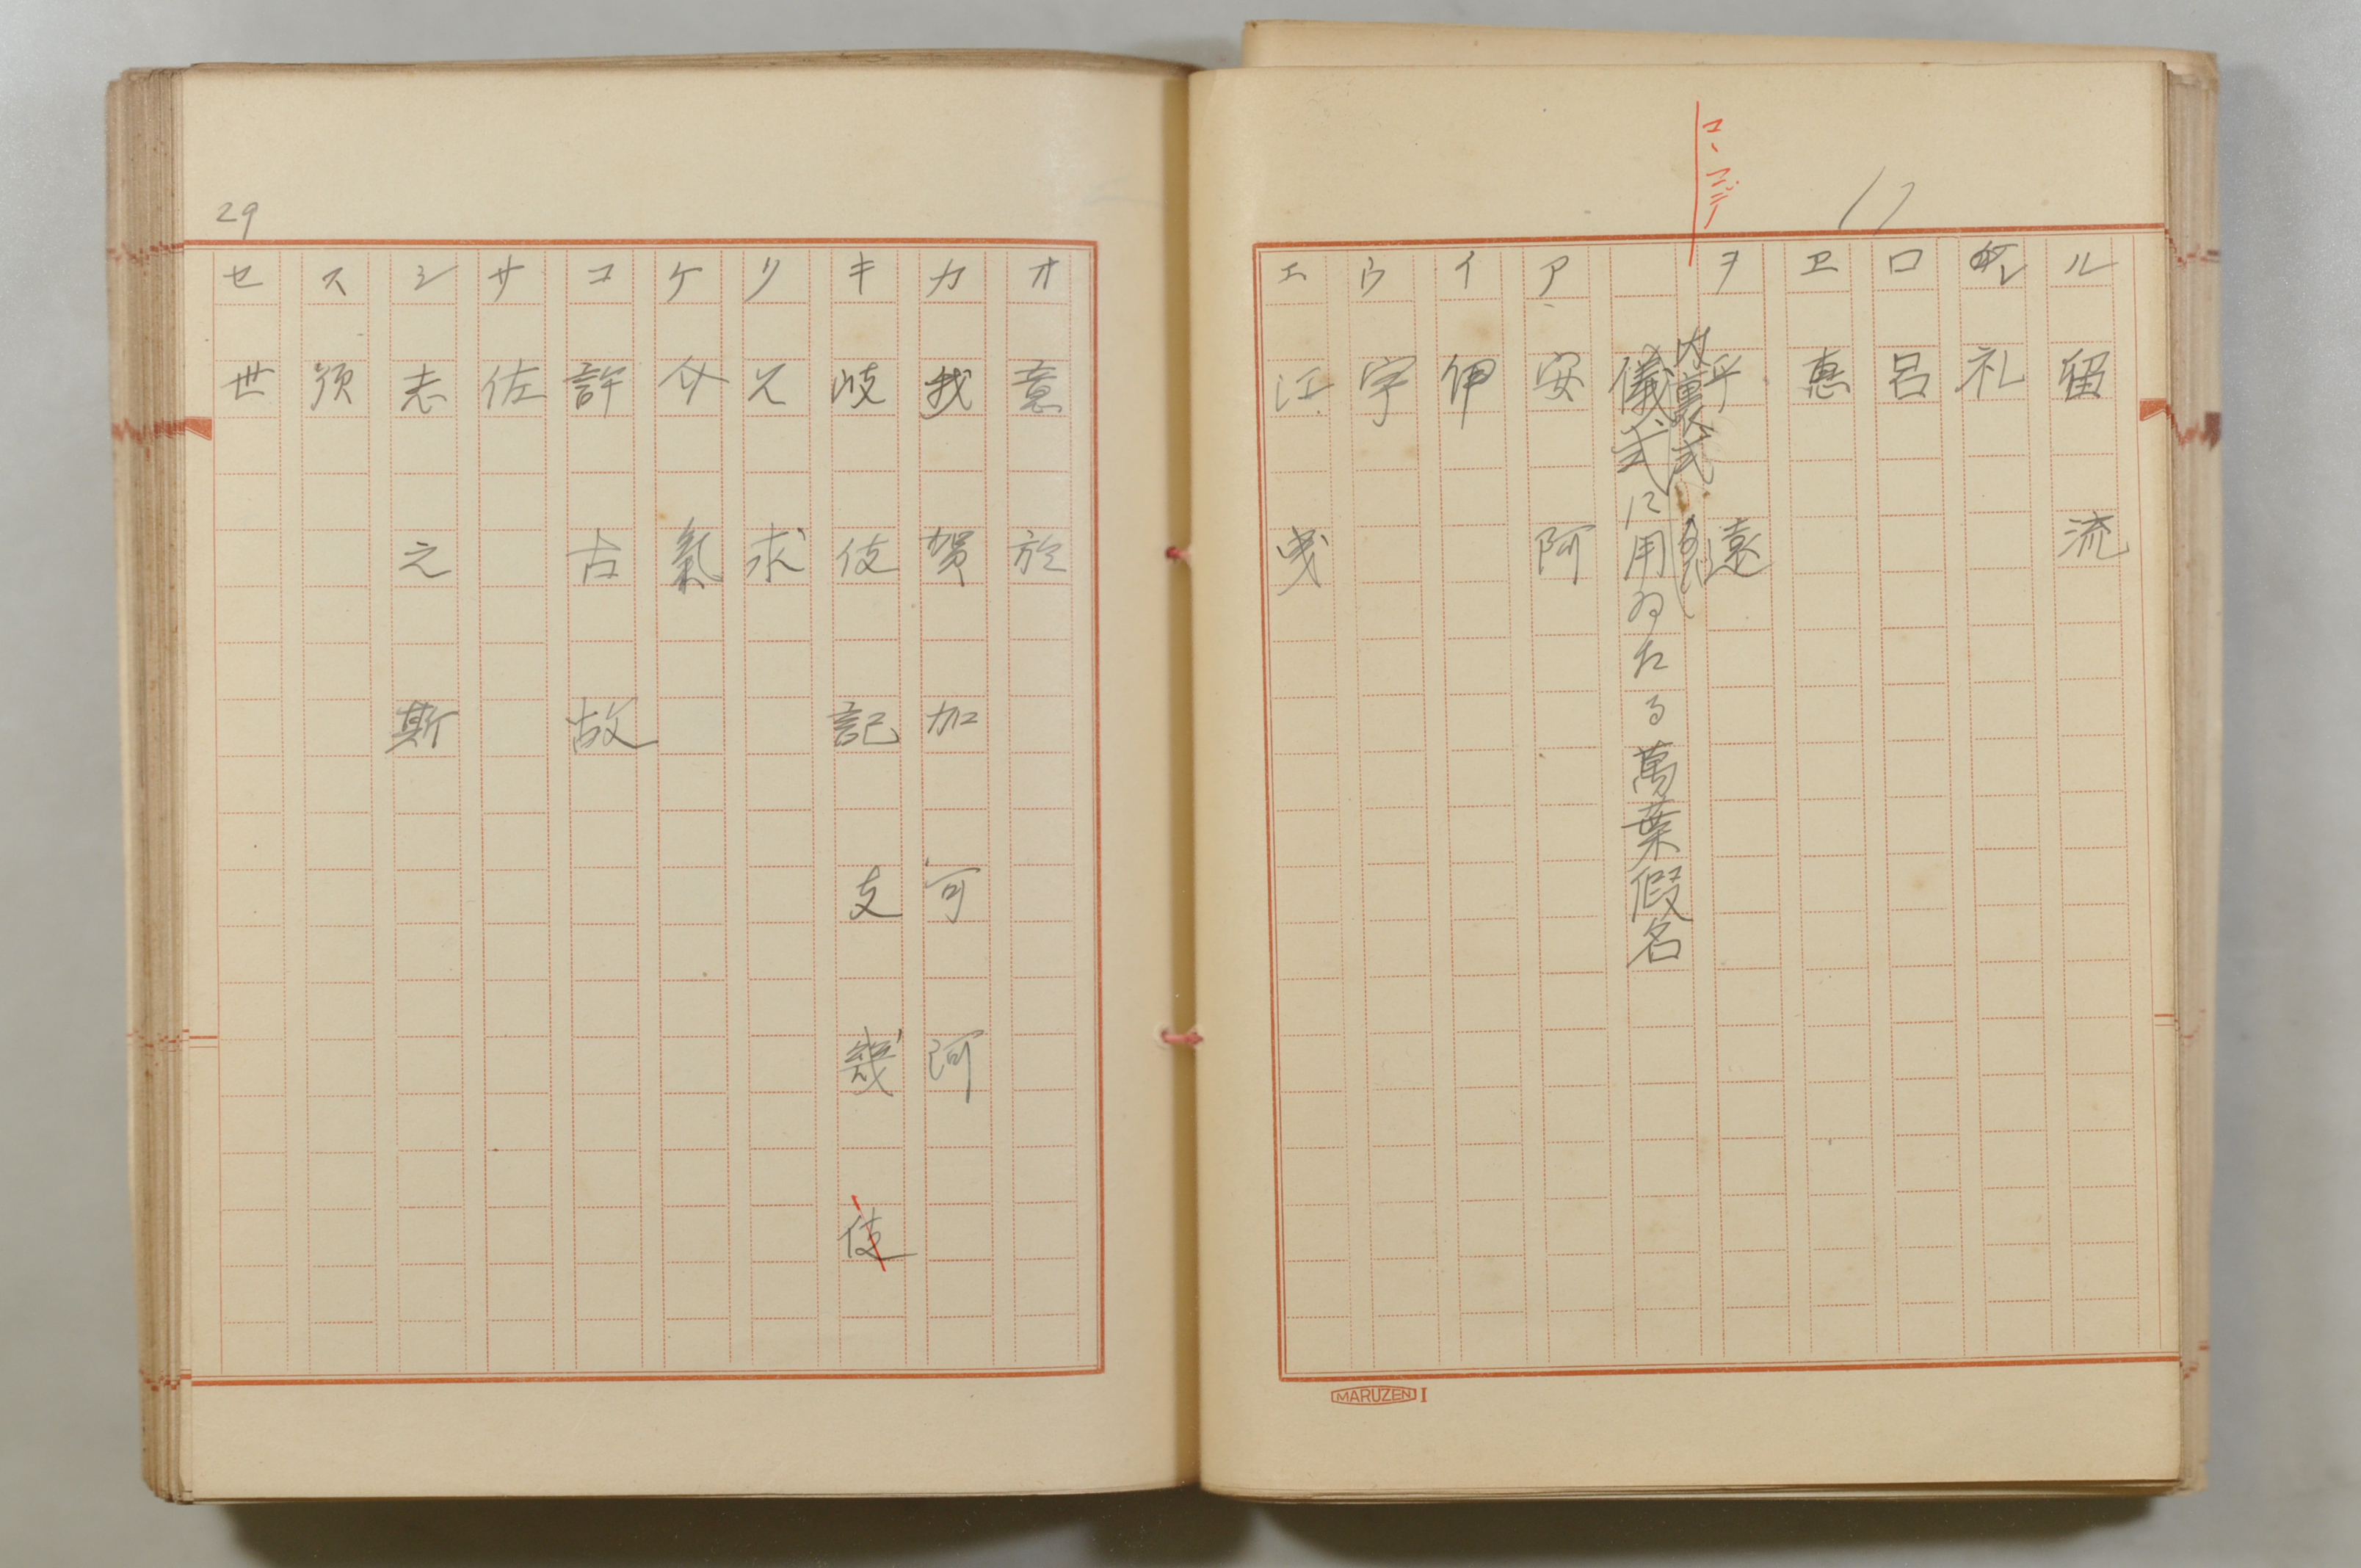 ル 留 流
レ 礼
ロ 呂
ヱ 恵
ヲ 乎 遠
内裏式
儀式に用ゐたる萬葉假名
ア 安 阿
イ 伊
ウ 宇
エ 江 曵
MARUZEN I
29
オ 意 於
カ 我 賀 加 可 阿
キ 岐 伎 記 支 幾 伎
ク 久 求
ケ 介 氣
コ 許 古 故
サ 佐
シ 志 之 斯
ス 須
セ 世